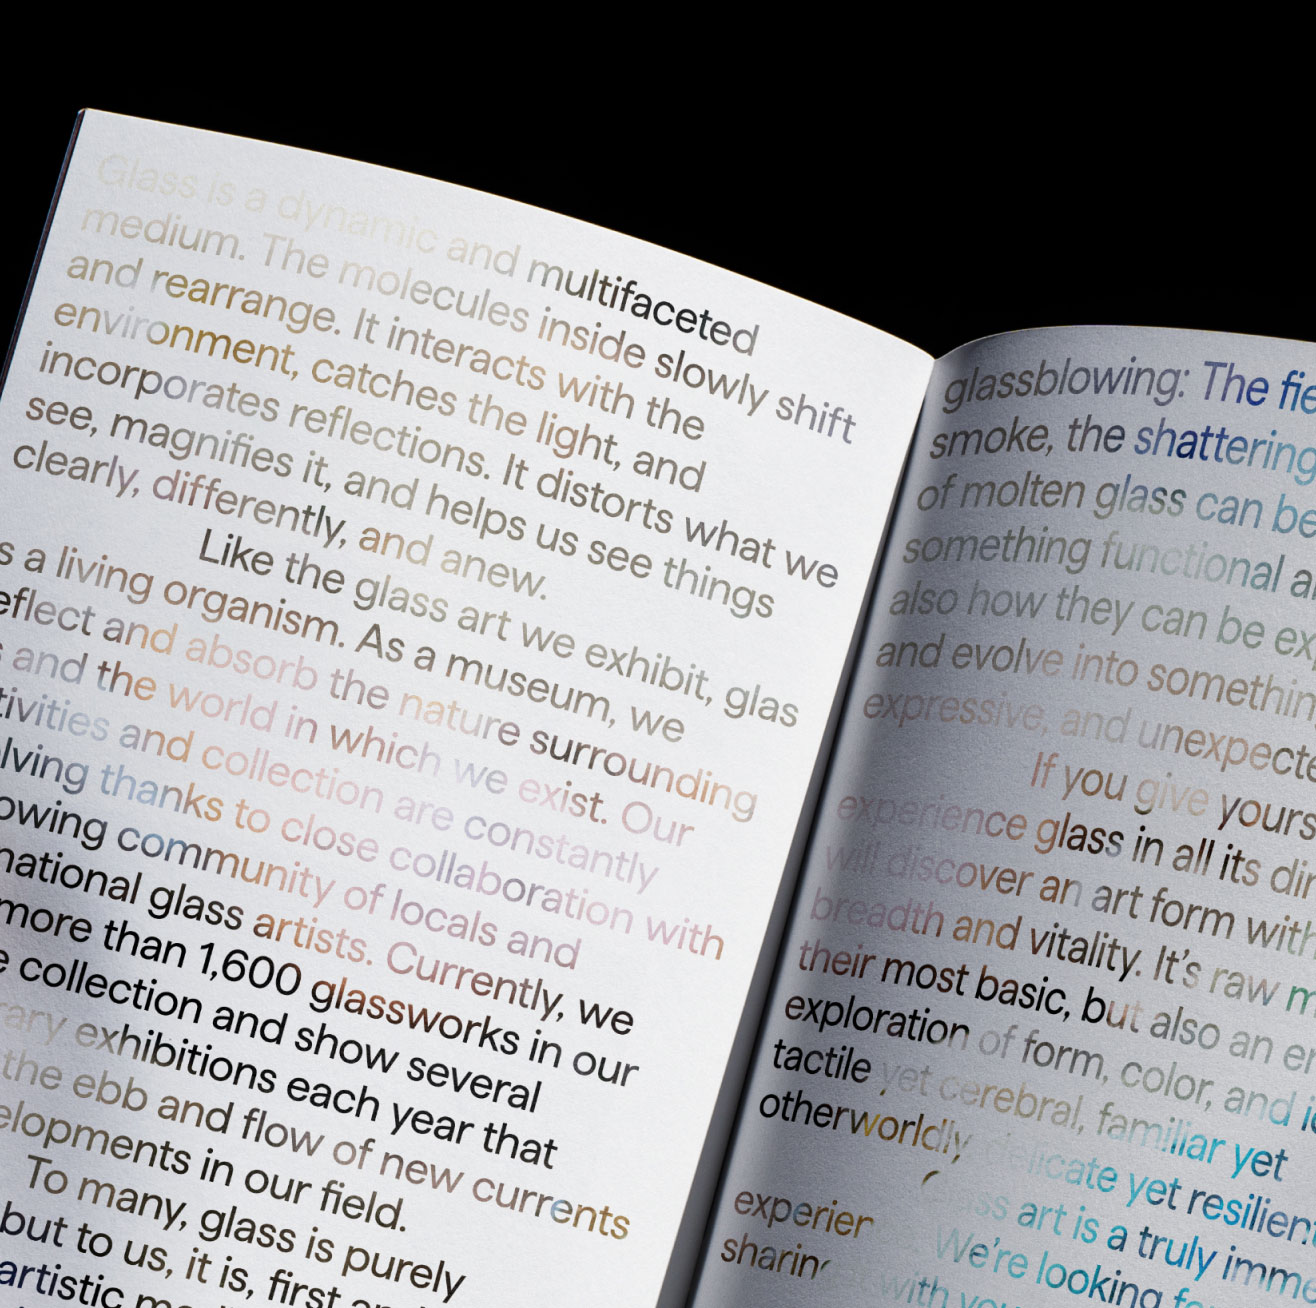 Glass is a dynamic and multifaceted
medium. The molecules inside slowly shift
and rearrange. It interacts with the
environment, catches the light, and
incorporates reflections. It distorts what we
see, magnifies it, and helps us see things
clearly, differently, and anew.
Like the glass art we exhibit, glas
s a living organism. As a museum, we
eflect and absorb the nature surrounding
s and the world in which we exist. Our
tivities and collection are constantly
olving thanks to close collaboration with
owing community of locals and
national glass artists. Currently, we
more than 1,600 glassworks in our
e collection and show several
rary exhibitions each year that
the ebb and flow of new currents
elopments in our field.
To many, glass is purely
but to us, it is, first an
artistic me
glassblowing: The fie
smoke, the shattering
of molten glass can be
something functional a
also how they can be ex
and evolve into somethin
expressive, and unexpecte
If you give yours
experience glass in all its dim
will discover an art form with
breadth and vitality. It's raw m
their most basic, but also an en
exploration of form, color, and
tactile yet cerebral, familiar yet
otherworldly, delicate yet resilien
ss art is a truly imme
experien We're looking fo
sharing with you